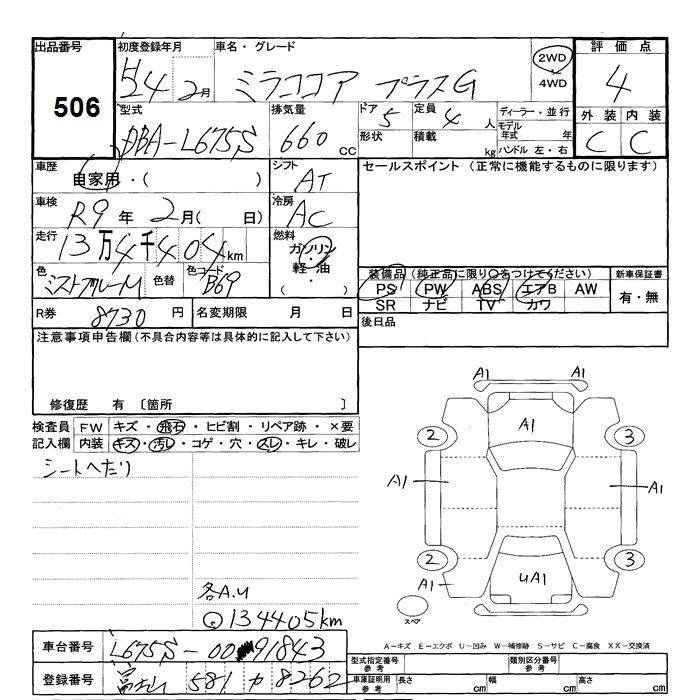 出品番号
506
初度登録年月
H24 2月
車名・グレード
ミラココア プラスG
2WD
4WD
評価点
4
外装 内装
C C
型式
DBA-L675S
排気量
660 CC
ドア 5
定員 4 人
形状
積載 kg
ディーラー・並行
モデル年式 年
ハンドル 左・右
車歴
自家用・( )
シフト
AT
セールスポイント (正常に機能するものに限ります)
車検
R9 年 2月( 日)
冷房
AC
走行
13万4千404km
燃料
ガソリン・
軽・油
( ・ )
色
ミストブルーM
色替
色コード
B69
装備品(純正品に限り○をつけてください)
PS PW ABS エアB AW
SR ナビ TV カワ
新車保証書
有・無
R券 8730 円
名変期限 月 日
後日品
注意事項申告欄(不具合内容等は具体的に記入して下さい)
修復歴 有 〔箇所 〕
検査員 FW キズ・飛石・ヒビ割・リペア跡・×要
記入欄 内装 キズ・汚レ・コゲ・穴・スレ・キレ・破レ
シートへたり
各A.U
134405km
A1 A1
A1
2 3
A1 A1
2 3
A1
UA1
スペア
A-キズ E-エクボ U-凹み W-補修跡 S-サビ C-腐食 XX-交換済
車台番号 L675S-0091843
型式指定番号
参考
類別区分番号
参考
登録番号 富士山 581 カ 8262
車庫証明用
参考
長さ cm 幅 cm 高さ cm